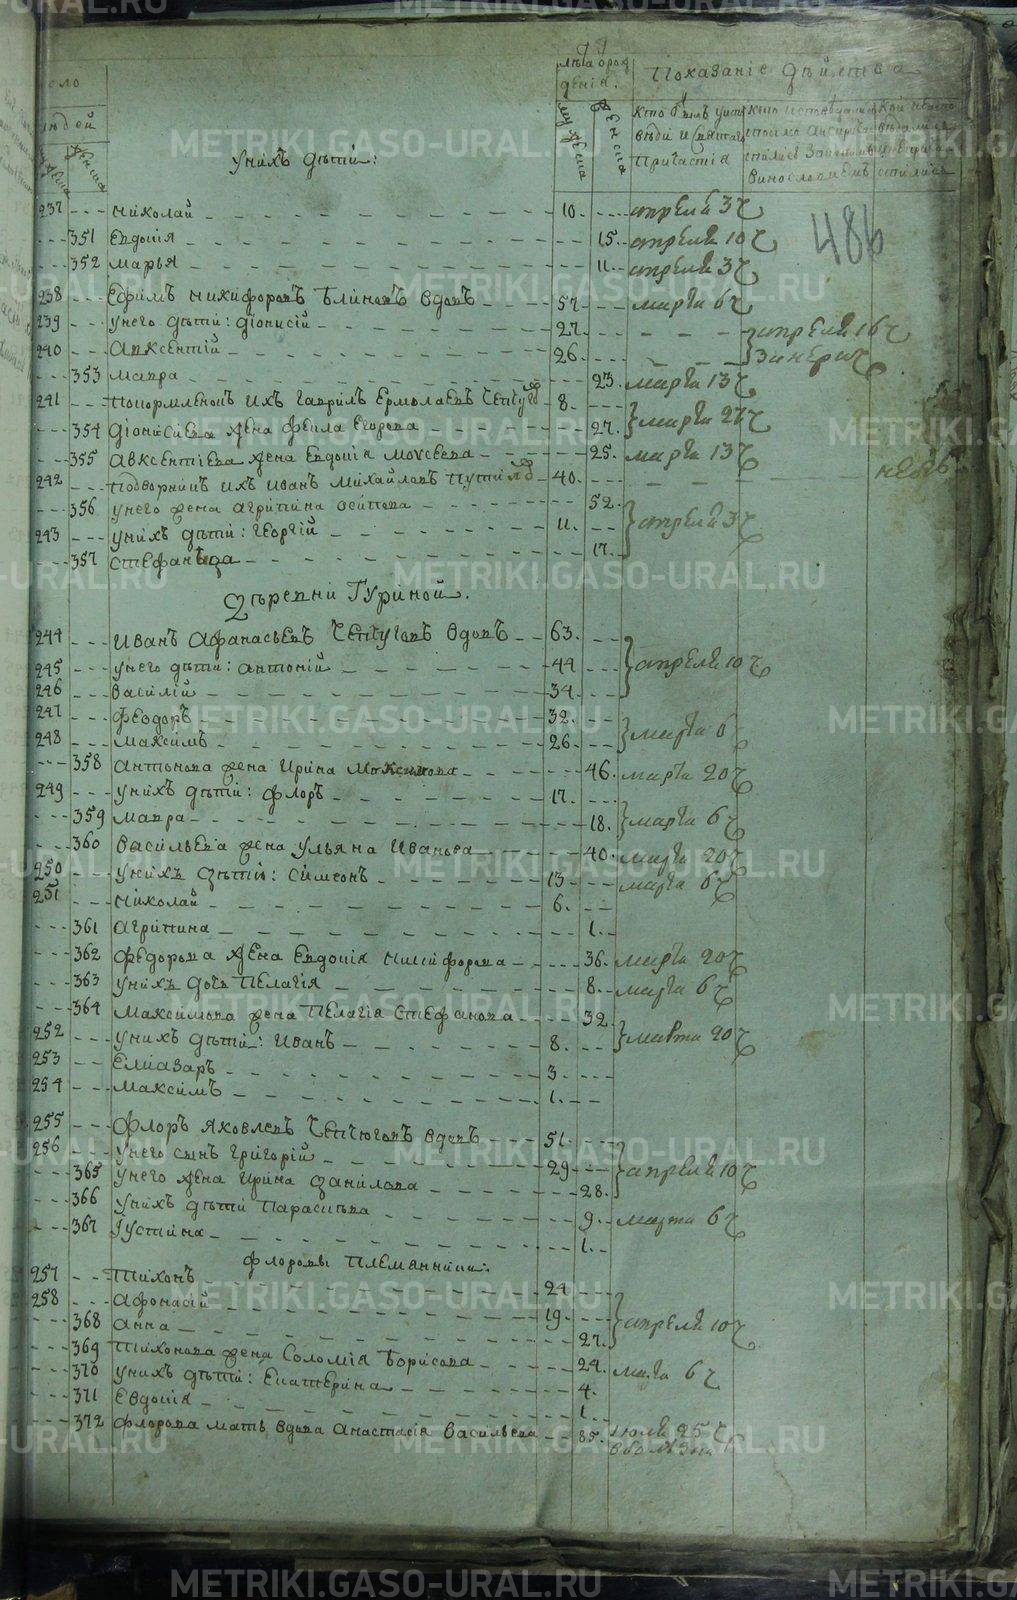 486
Показаніе дѣйства
У нихъ дѣти:
237 Николай 10. апреля 3 ч
351 Евдокія 15. апреля 10 ч
352 Марья 11. апреля 3 ч
238 Ефимъ Никифоровъ Блиновъ вдовъ 57 марта 6 ч
239 У него дѣти: Діонисій 27. апреля 16 ч
240 Авксентій 26
353 Мавра 23. марта 13 ч
241 Покормленокъ ихъ Гаврилъ Ермолаевъ 8. марта 27 ч
354 Діонисіева жена Фекла Егорова 27.
355 Авксентіева жена Евдокія Моусеева 25. марта 13 ч
242 Подворникъ ихъ Иванъ Михайловъ 40. не бъ
356 У него жена Агрипина Осипова 52. апреля 3 ч
243 У нихъ дѣти: Георгій 11.
357 Стефанида 17.
Дѣревни Гуриной.
244 Иванъ Афанасьевъ Чепчуговъ вдовъ 63. апреля 10 ч
245 У него дѣти: Антоній 44
246 Василій 34.
247 Феодоръ 32. марта 6
248 Максимъ 26.
358 Антонова жена Ирина Максимова 46. марта 20 ч
249 У нихъ дѣти: Флоръ 17. марта 6 ч
359 Мавра 18.
360 Васильева жена Ульяна Иванова 40. марта 20 ч
250 У нихъ дѣти: Симеонъ 13 марта 6 ч
251 Николай 6.
361 Агрипина 1.
362 Федорова жена Евдокія Никифорова 36. марта 20 ч
363 У нихъ дочь Пелагія 8. марта 6 ч
364 Максимова жена Пелагія Стефанова 32. марта 20 ч
252 У нихъ дѣти: Иванъ 8.
253 Еліазаръ 3.
254 Максимъ 1.
255 Флоръ Яковлевъ Чепчюговъ вдовъ 51. апреля 10 ч
256 У него сынъ Григорій 29
365 У него жена Ирина Данилова 28.
366 У нихъ дѣти Парасковья 9. марта 6 ч
367 Іустина 1.
Флоровы племянники:
257 Тихонъ 24 апреля 10 ч
258 Афонасій 19.
368 Анна 27.
369 Тихонова жена Соломія Борисова 24. марта 6 ч
370 У нихъ дѣти: Екатерина 4.
371 Евдокія 1.
372 Флорова мать вдова Анастасія Васильева 85. іюля 25 ч
в болезни
METRIKI.GASO-URAL.RU